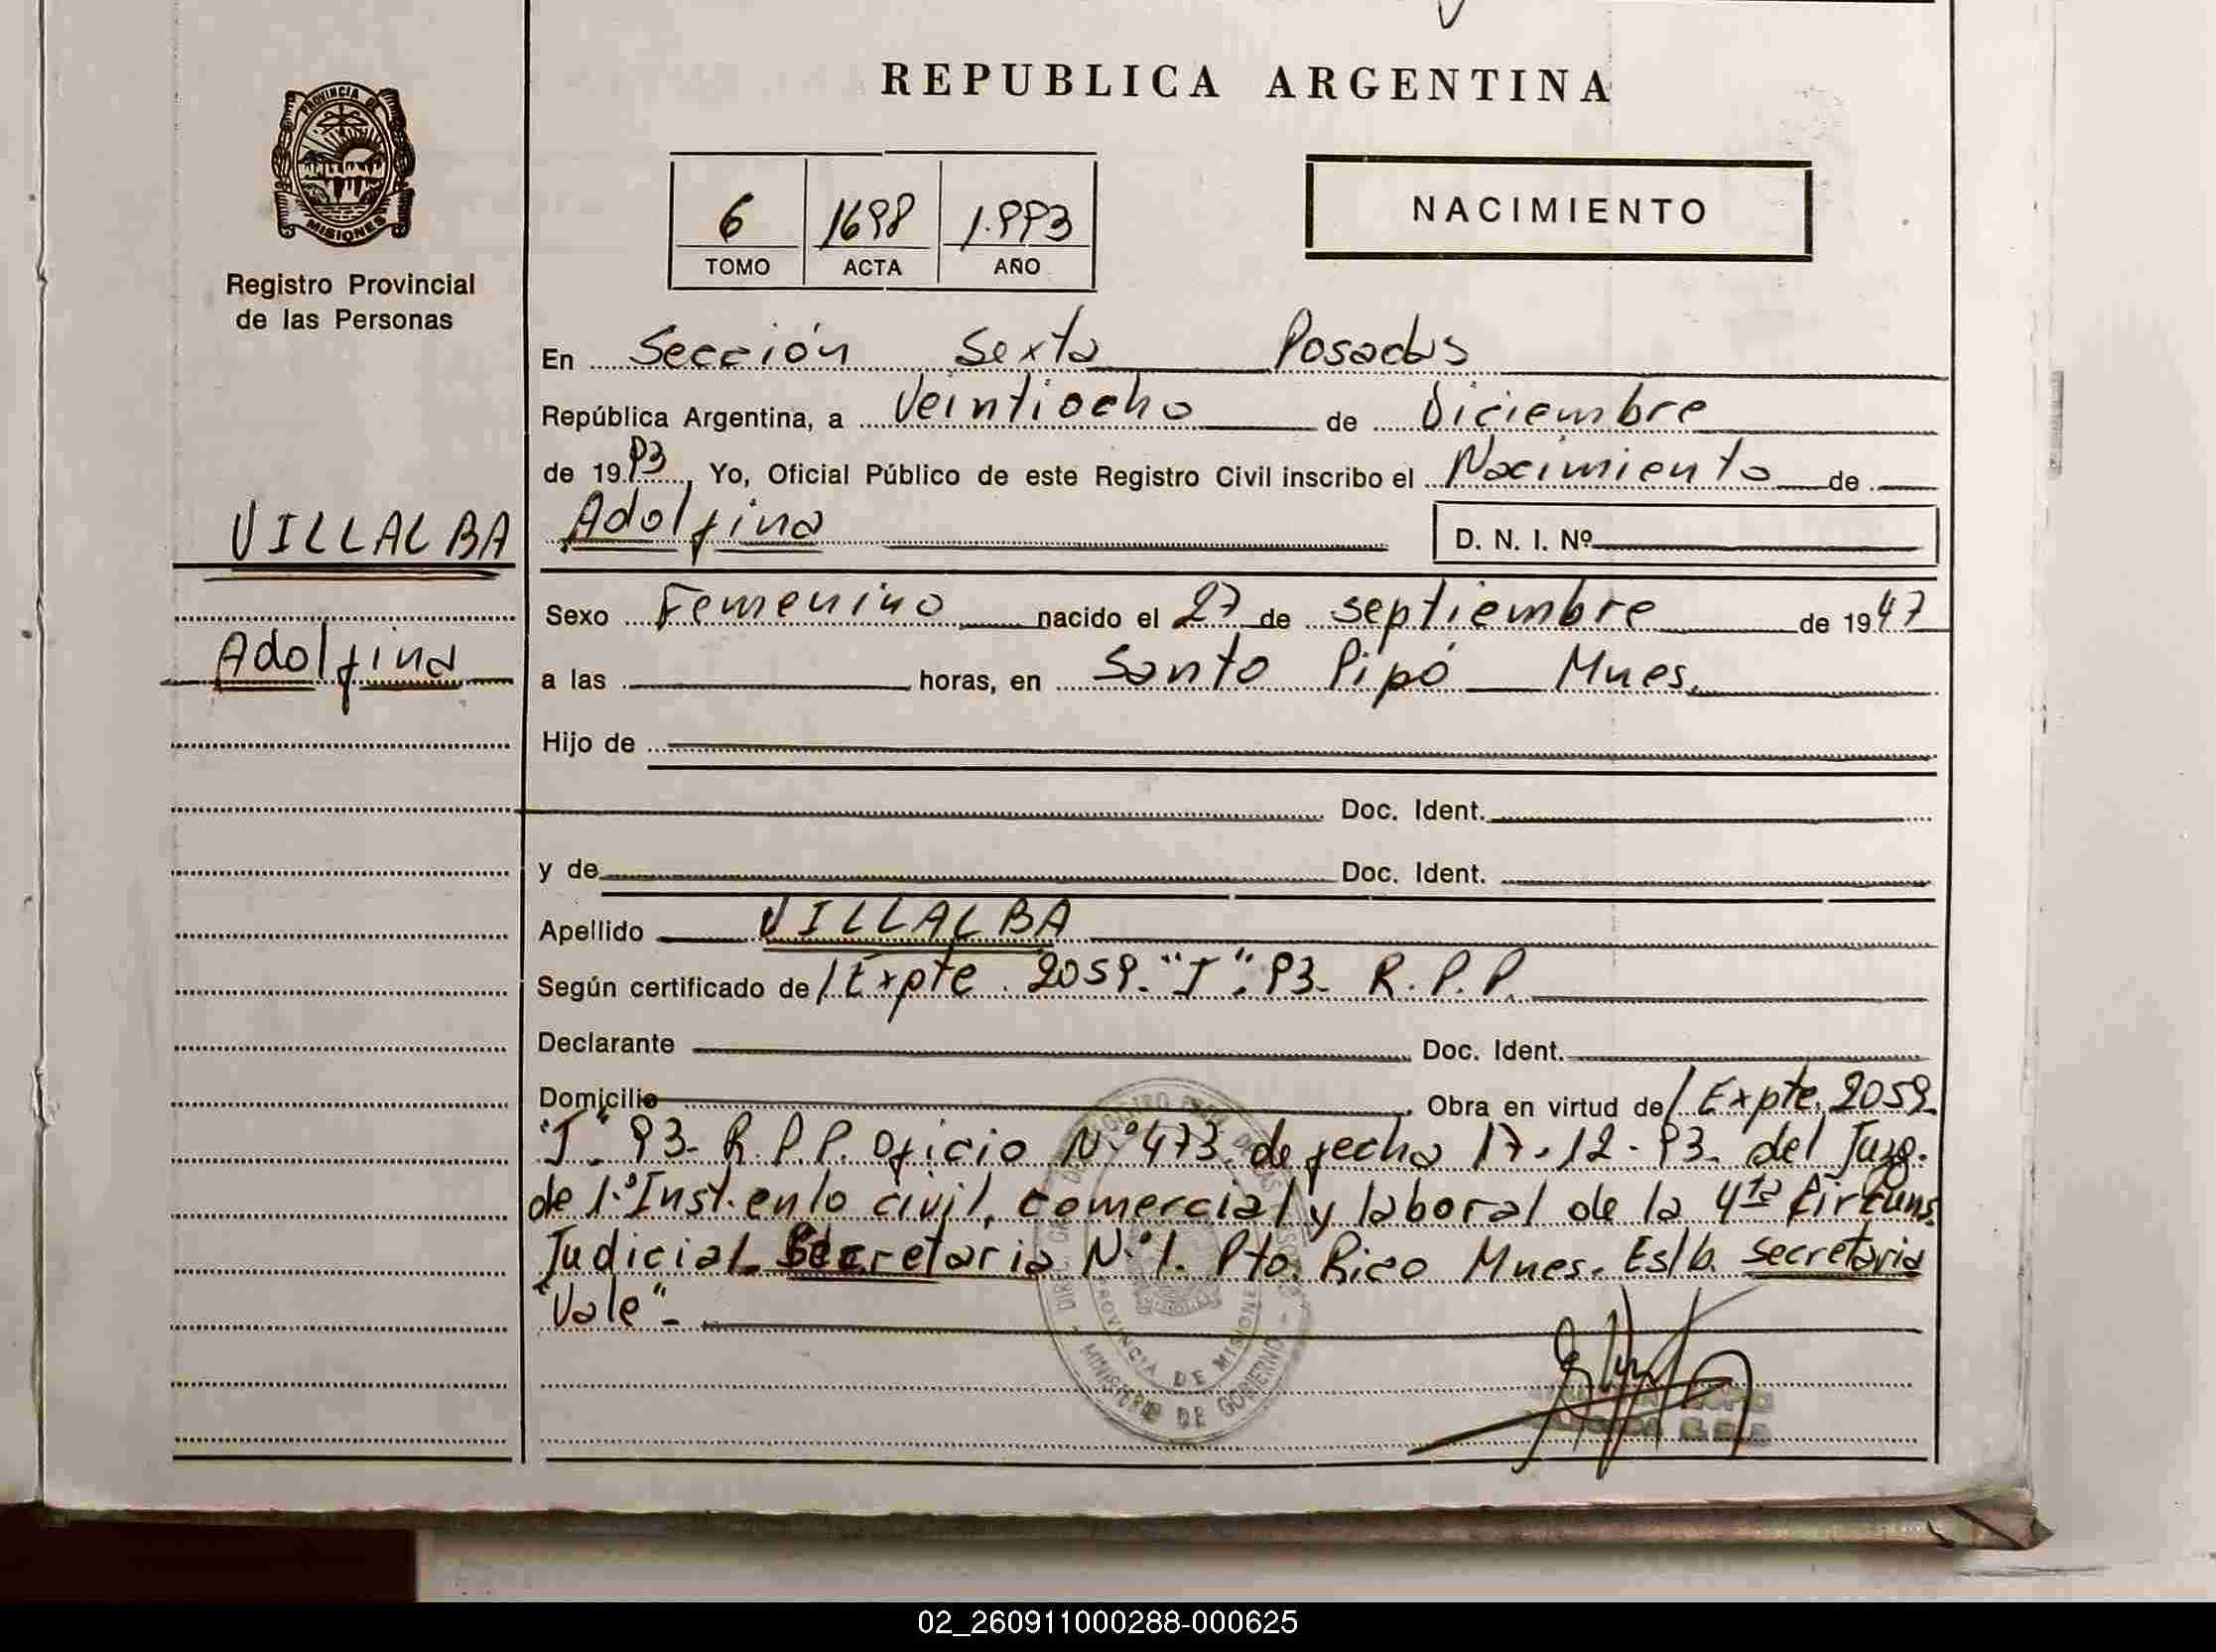 REPUBLICA ARGENTINA
PROVINCIA DE
MISIONES
Registro Provincial
de las Personas
6 1698 1.993
TOMO ACTA AÑO
NACIMIENTO
En Sección Sexta Posadas
República Argentina, a Veintiocho de Diciembre
de 1993, Yo, Oficial Público de este Registro Civil inscribo el Nacimiento de
VILLALBA Adolfina D. N. I. Nº
Sexo Femenino nacido el 27 de septiembre de 1947
Adolfina a las horas, en Santo Pipó Mnes.
Hijo de
Doc. Ident.
y de Doc. Ident.
Apellido VILLALBA
Según certificado de / Expte. 2059. "J". 93- R. P. P.
Declarante Doc. Ident.
Domicilio Obra en virtud de / Expte. 2059.
"J". 93- R. P. P. Oficio N.º 473 de fecha 17.12.93. del Juzg.
de 1.º Inst. en lo civil, comercial y laboral de la 4ta Circuns.
Judicial. Secretaria N.º 1. Pto. Rico Mnes. Es/b. secretaria
"Vale"-
PROVINCIA DE MISIONES
MINISTERIO DE GOBIERNO
02_260911000288-000625